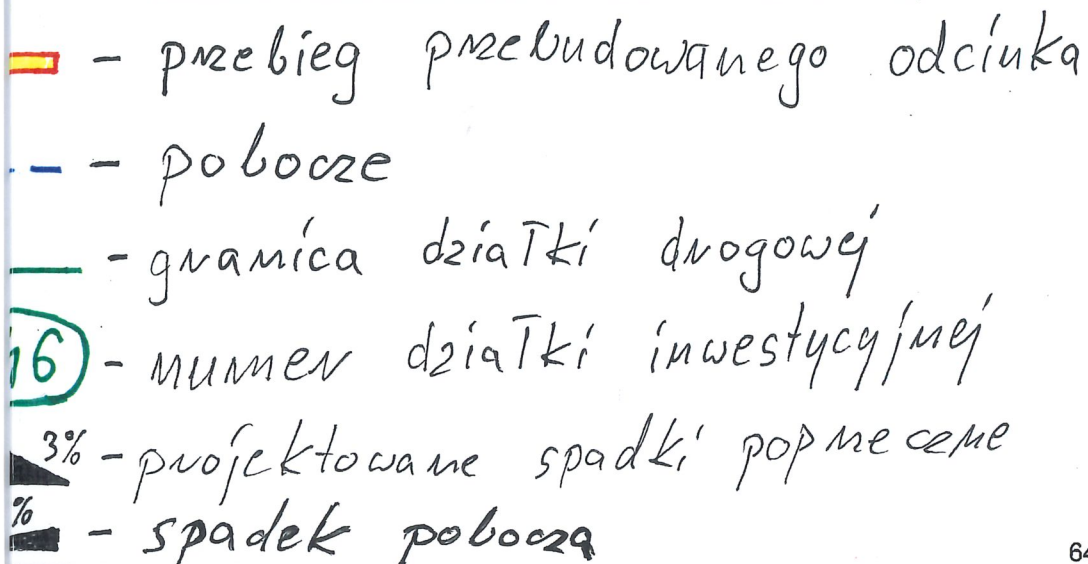 - przebieg przebudowanego odcinka
- pobocze
- granica działki drogowej
16 - numer działki inwestycyjnej
3% - projektowane spadki poprzeczne
% - spadek pobocza
64